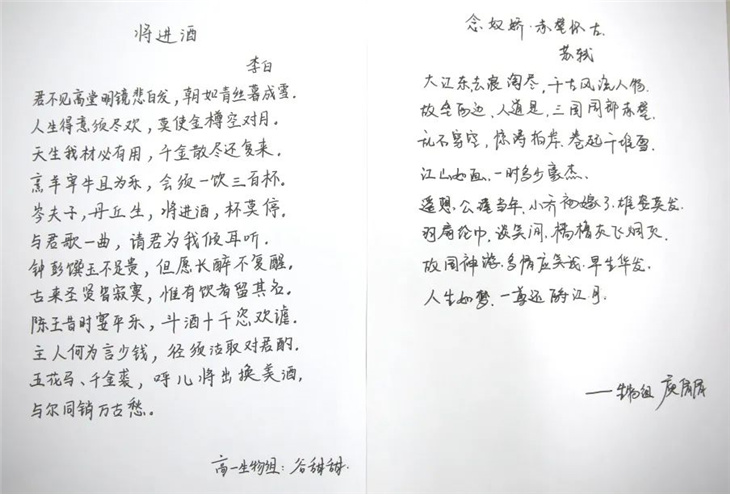 将进酒
李白
君不见高堂明镜悲白发，朝如青丝暮成雪。
人生得意须尽欢，莫使金樽空对月。
天生我材必有用，千金散尽还复来。
烹羊宰牛且为乐，会须一饮三百杯。
岑夫子，丹丘生，将进酒，杯莫停。
与君歌一曲，请君为我倾耳听。
钟鼓馔玉不足贵，但愿长醉不复醒。
古来圣贤皆寂寞，惟有饮者留其名。
陈王昔时宴平乐，斗酒十千恣欢谑。
主人何为言少钱，径须沽取对君酌。
五花马、千金裘，呼儿将出换美酒，
与尔同销万古愁。
高一生物组：谷甜甜
念奴娇·赤壁怀古
苏轼
大江东去，浪淘尽，千古风流人物。
故垒西边，人道是，三国周郎赤壁。
乱石穿空，惊涛拍岸，卷起千堆雪。
江山如画，一时多少豪杰。
遥想公瑾当年，小乔初嫁了，雄姿英发。
羽扇纶巾，谈笑间，樯橹灰飞烟灭。
故国神游，多情应笑我，早生华发。
人生如梦，一尊还酹江月。
——生物组